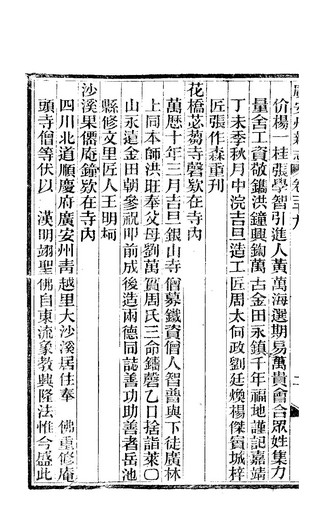 廣安州新志　卷三十九
價楊一桂張學智引進人黃萬海選期易萬貴會合眾姓集力
量舍工資敬鑄洪鐘興鉤萬古金田永鎮千年福地謹記嘉靖
丁未季秋月中浣吉旦造工匠周太向政劉廷煥楊傑賓城梓
匠張作森重刊
花橋苾芻寺磬欵在寺內
萬曆十年三月吉旦銀山寺僧募鐵資僧人智普與下徒廣林
上同本師洪旺奉父母劉萬賀周氏三命鑄磬乙口捨詣萊〇
山永遠金田朝參祝卬前成後造兩德同誌善功助善者岳池
縣修文里匠人王明坰
沙溪果儒庵鐘欵在寺內
四川北道順慶府廣安州靑越里大沙溪居住奉　佛重修庵
頭寺僧等伏以　漢明翊聖　佛自東流象教興隆法惟今盛此
二